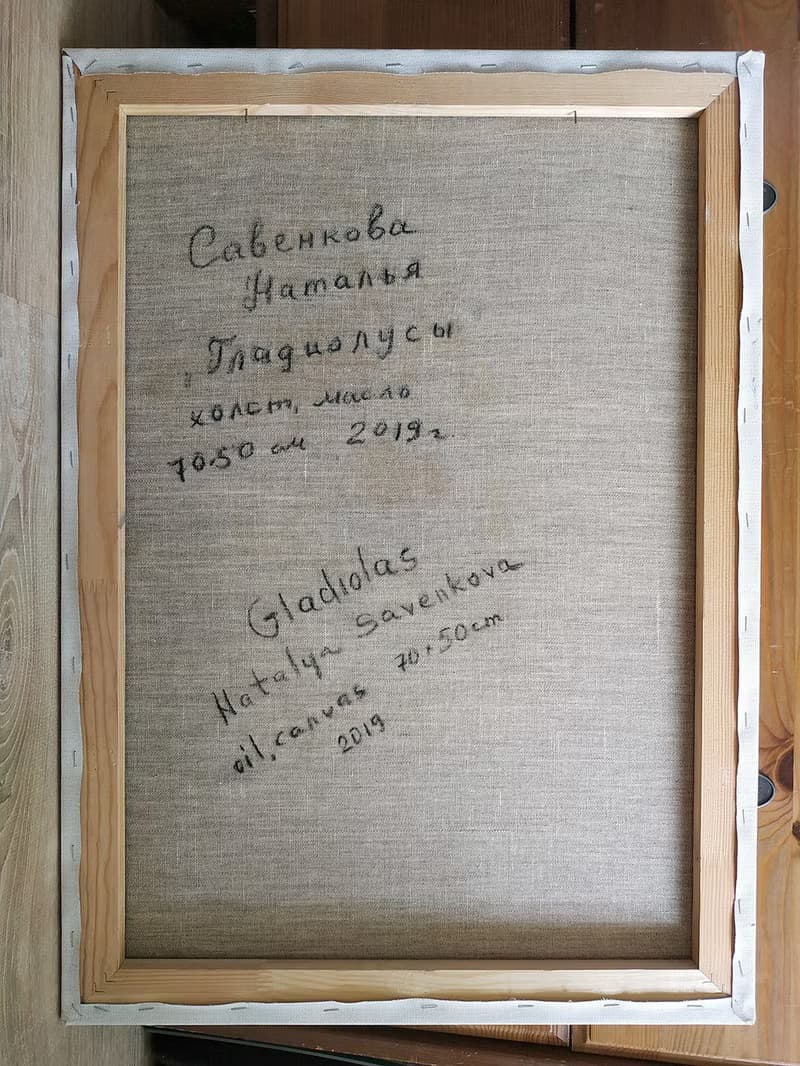 Савенкова
Наталья
„Гладиолусы
холст, масло
70.50 см 2019 г.
Gladiolas
Natalya Savenkova
oil, canvas 70×50cm
2019